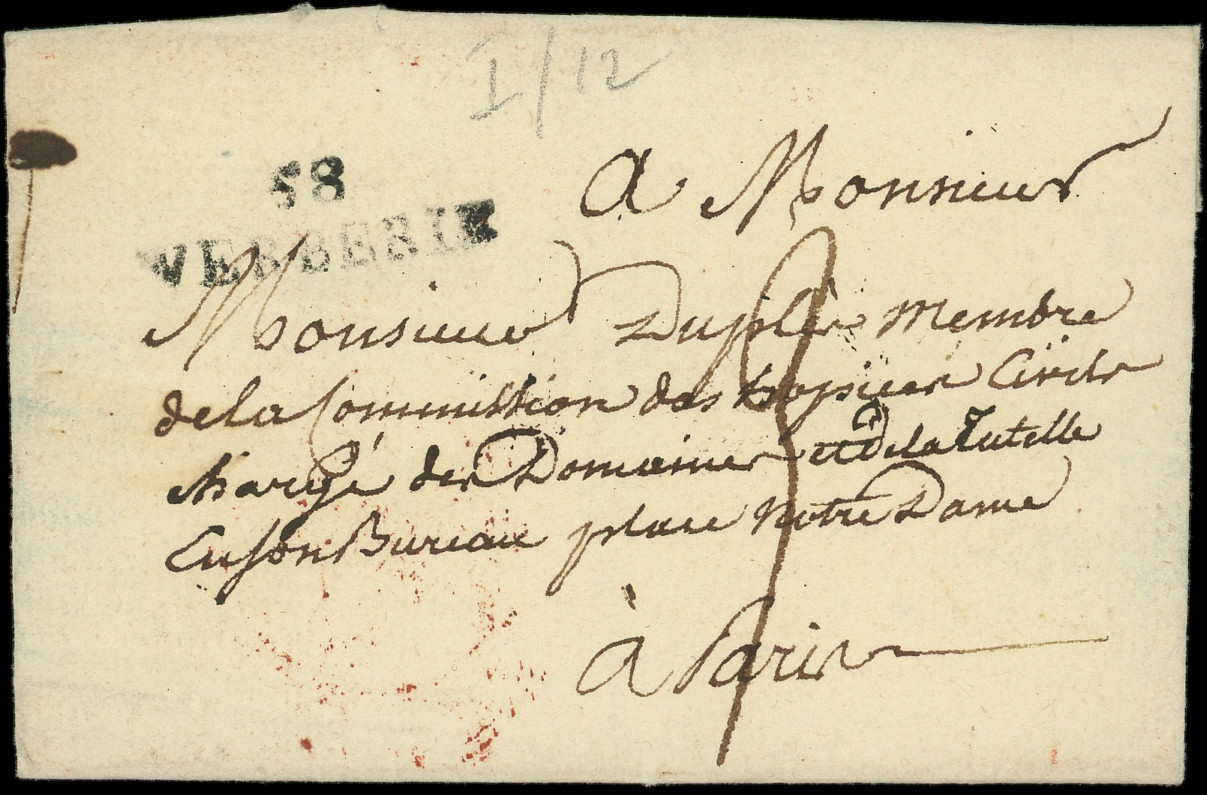 I/12
58
VERBERIE
a Monsieur
Monsieur Duplès Membre
de la Commission des hospices Civils
chargé des Domaines et de la Tutelle
en son Bureau place notre Dame
à Paris